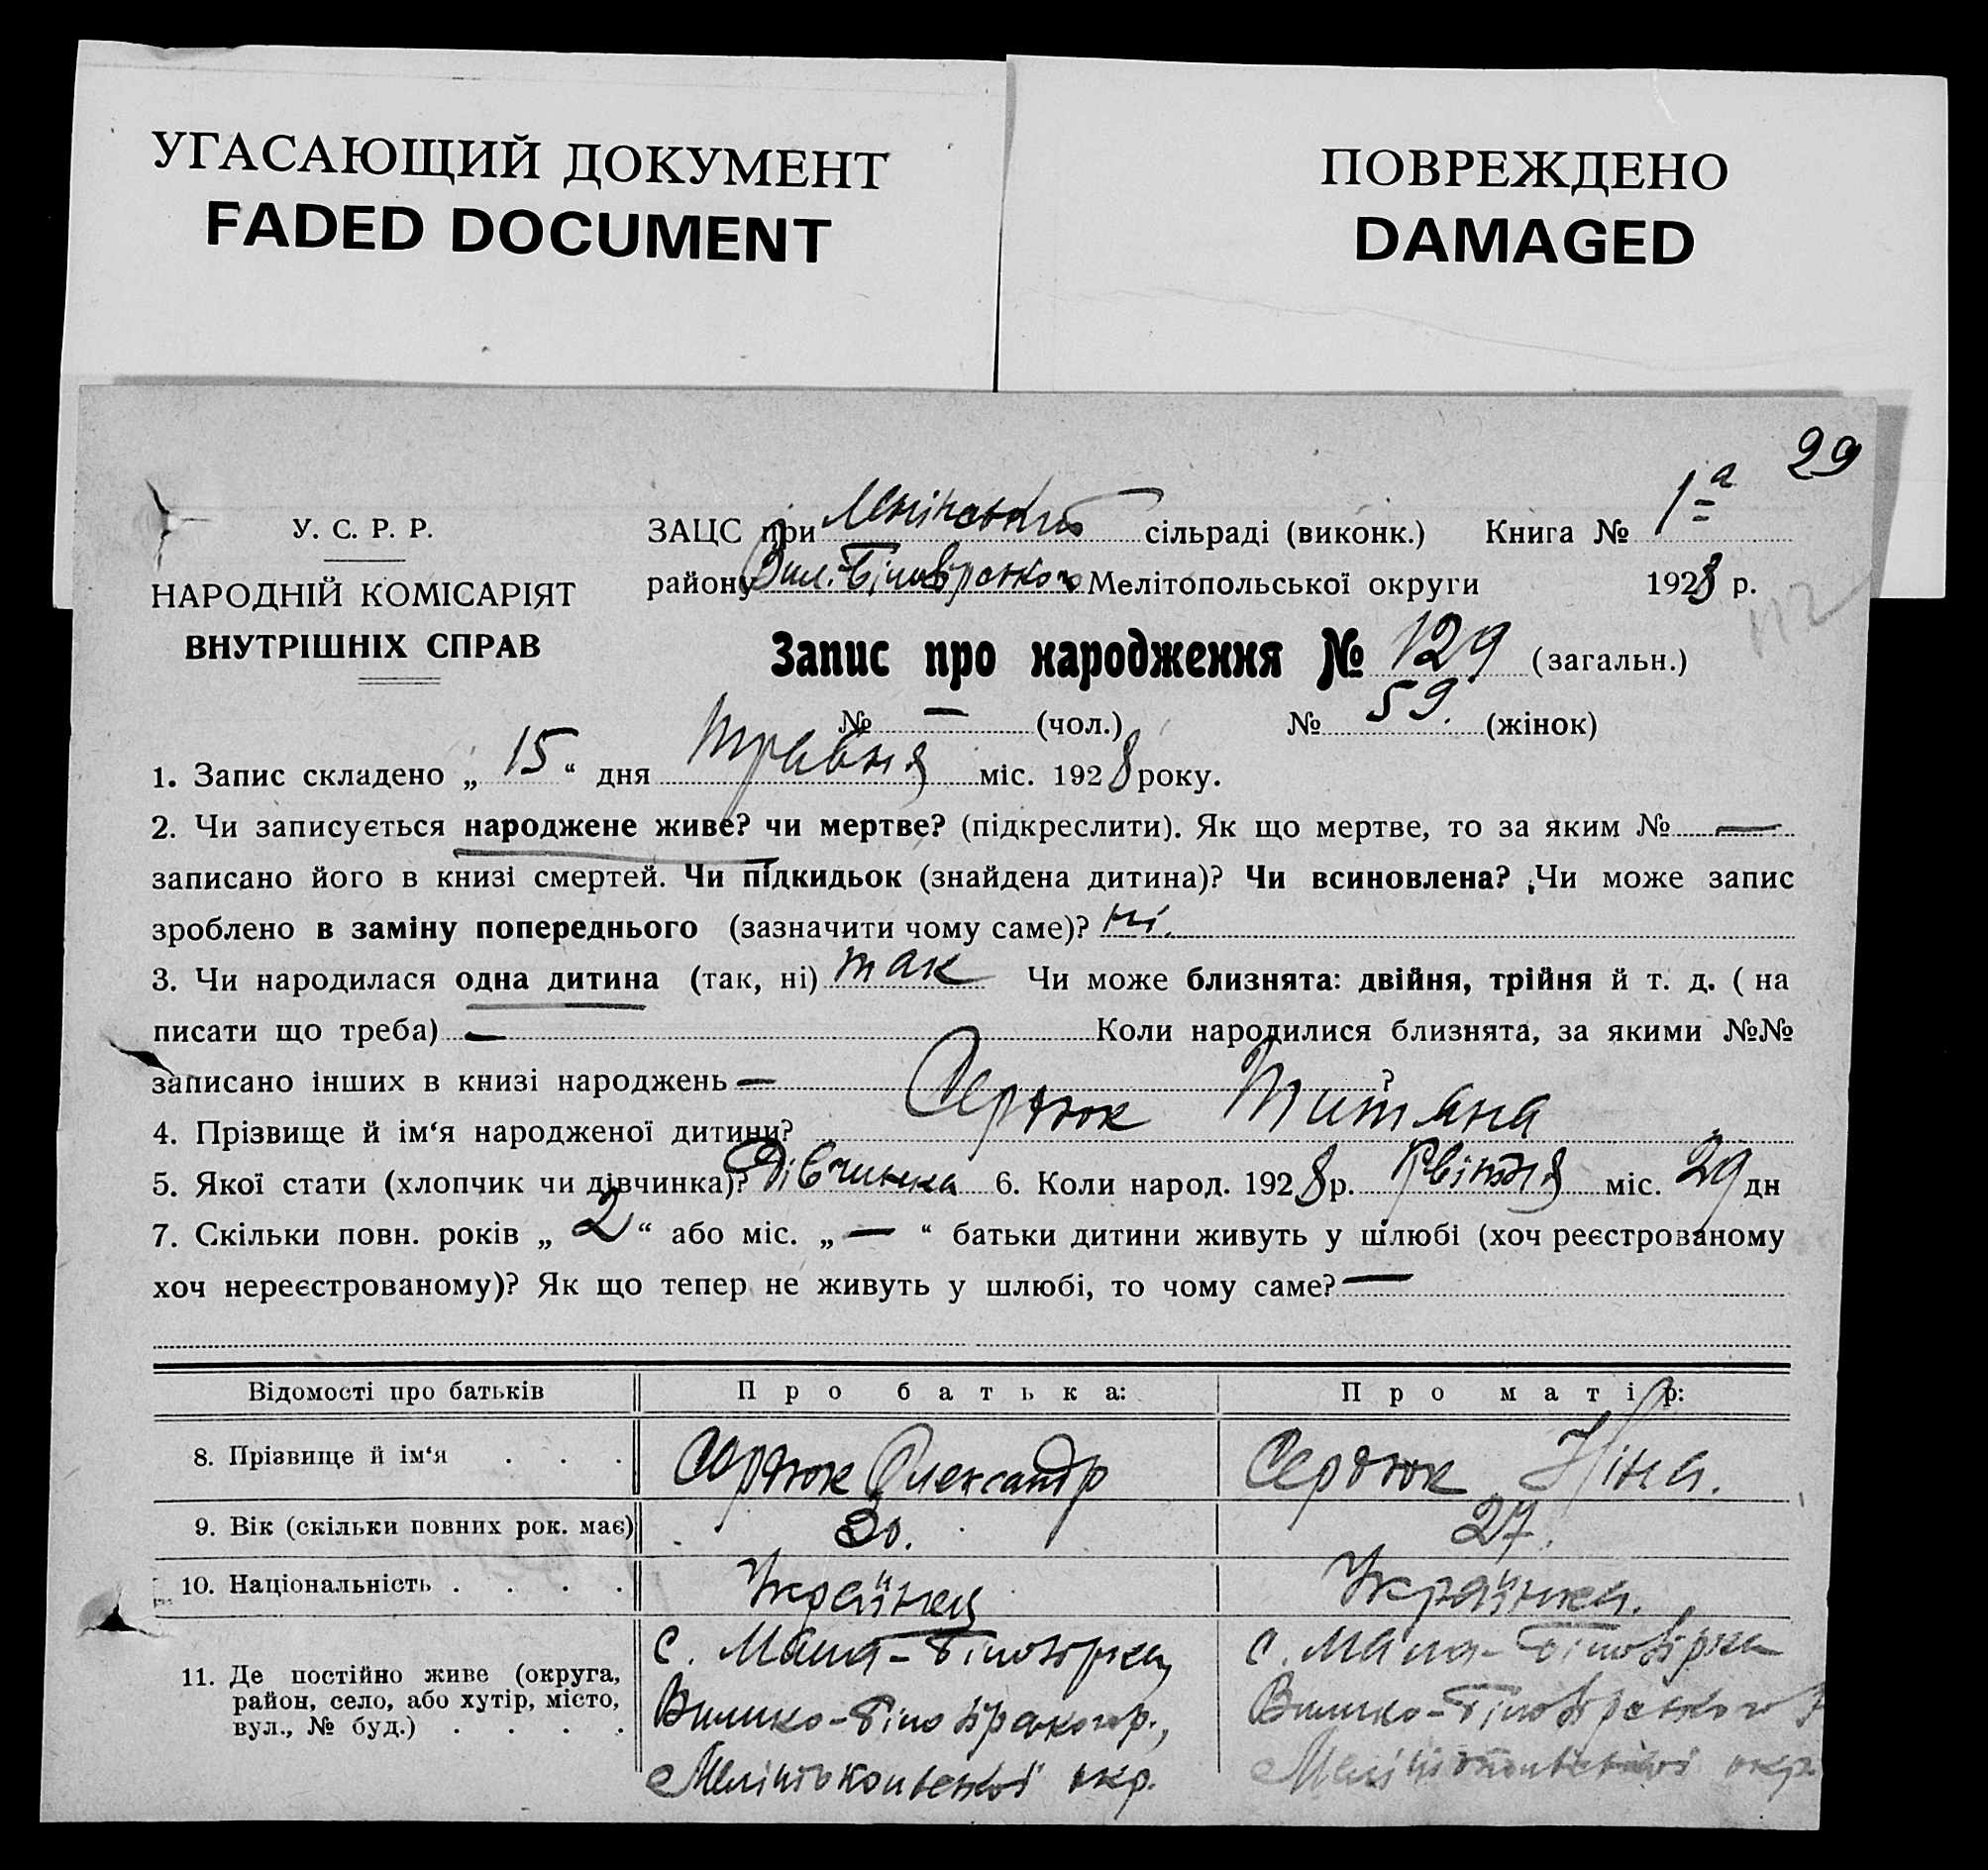 УГАСАЮЩИЙ ДОКУМЕНТ
FADED DOCUMENT
ПОВРЕЖДЕНО
DAMAGED
29
У. С. Р. Р.
НАРОДНІЙ КОМІСАРІЯТ
ВНУТРІШНІХ СПРАВ
ЗАЦС при сільраді (виконк.) Книга № 1а
району Вил.-Білозірського Мелітопольської округи 1928 р.
112
Запис про народження № 129 (загальн.)
№ — (чол.) № 59. (жінок)
1. Запис складено „ 15 “ дня Травня міс. 1928 року.
2. Чи записується народжене живе? чи мертве? (підкреслити). Як що мертве, то за яким № —
записано його в книзі смертей. Чи підкидьок (знайдена дитина)? Чи всиновлена? Чи може запис
зроблено в заміну попереднього (зазначити чому саме)? ні.
3. Чи народилася одна дитина (так, ні) так Чи може близнята: двійня, трійня й т. д. ( на
писати що треба) — Коли народилися близнята, за якими №№
записано інших в книзі народжень — ?
4. Прізвище й ім‘я народженої дитини? Сердюк Титяна
5. Якої стати (хлопчик чи дівчинка)? Дівчинка 6. Коли народ. 1928 р. Квітня міс. 29 дн
7. Скільки повн. років „ 2 “ або міс. „ — “ батьки дитини живуть у шлюбі (хоч реєстрованому
хоч нереєстрованому)? Як що тепер не живуть у шлюбі, то чому саме? —
Відомості про батьків Про батька: Про матір:
8. Прізвище й ім‘я . . . Сердюк Олександр Сердюк Ніна.
9. Вік (скільки повних рок. має) 30. 27.
10. Національність . . . . Українец Українка.
11. Де постійно живе (округа,
район, село, або хутір, місто,
вул., № буд.) . . . .
с. Мала-Білозірка,
Вилико-Білозірського р.,
Мелітопольської окр.
с. Мала-Білозірка
Вилико-Білозірського р
Мелітопольської окр.